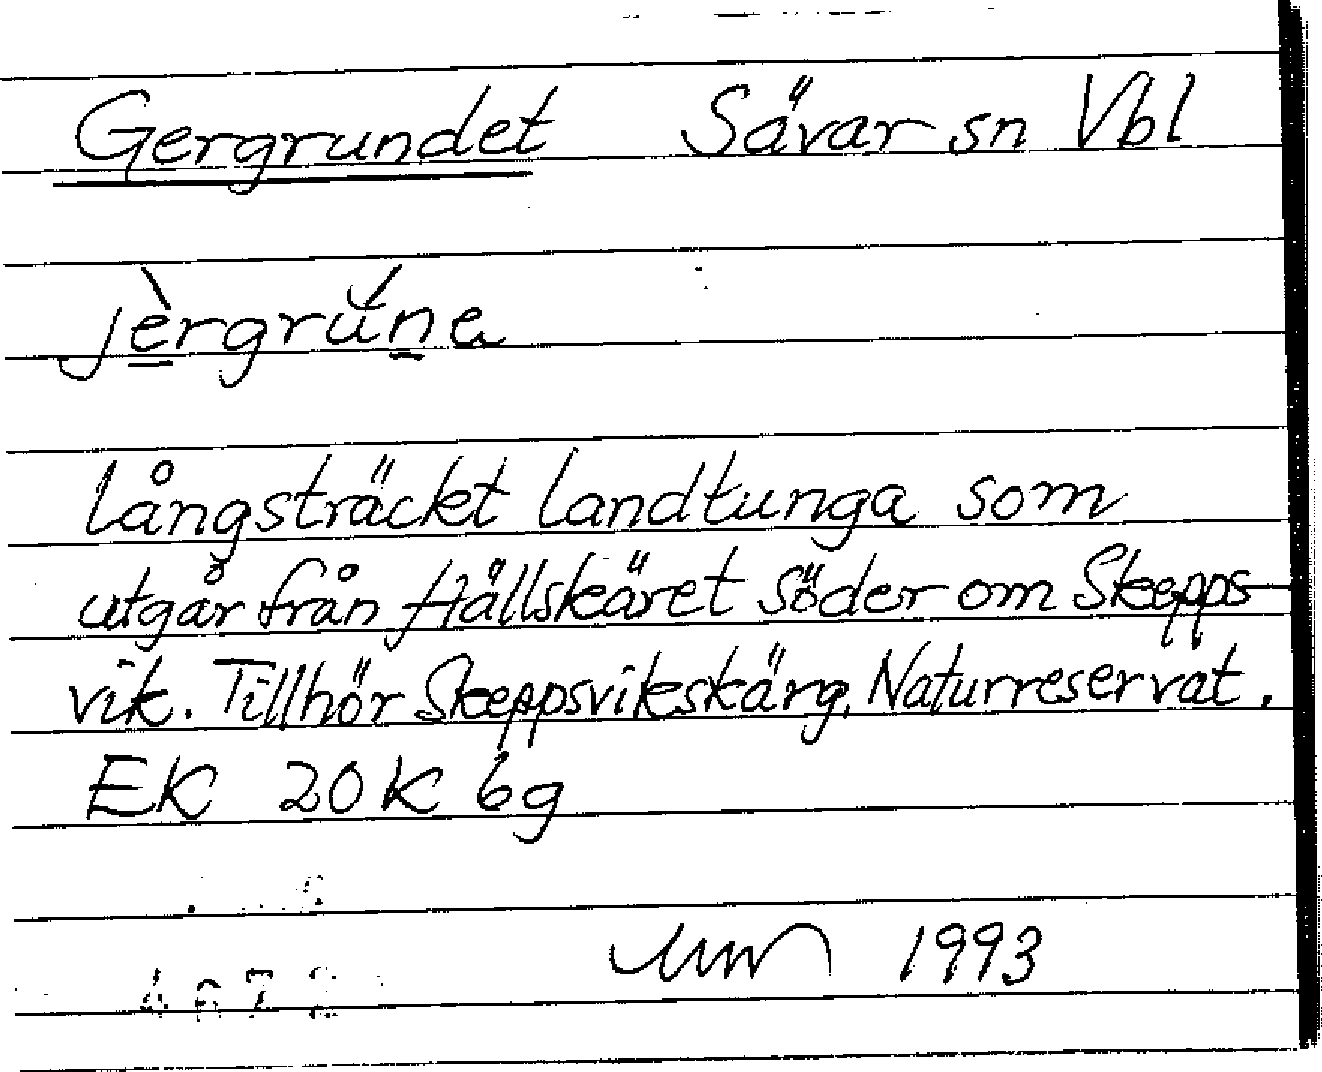 Gergrundet Sävar sn Vbl
jèrgrŭ́na
Långsträckt landtunga som
utgår från Hällskäret söder om Skepps-
vik. Tillhör Skeppsvikskärg. Naturreservat.
EK 20K 6g
1993